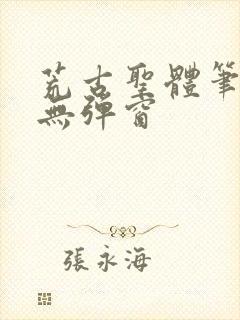 荒古聖體筆
無彈窗
張永海